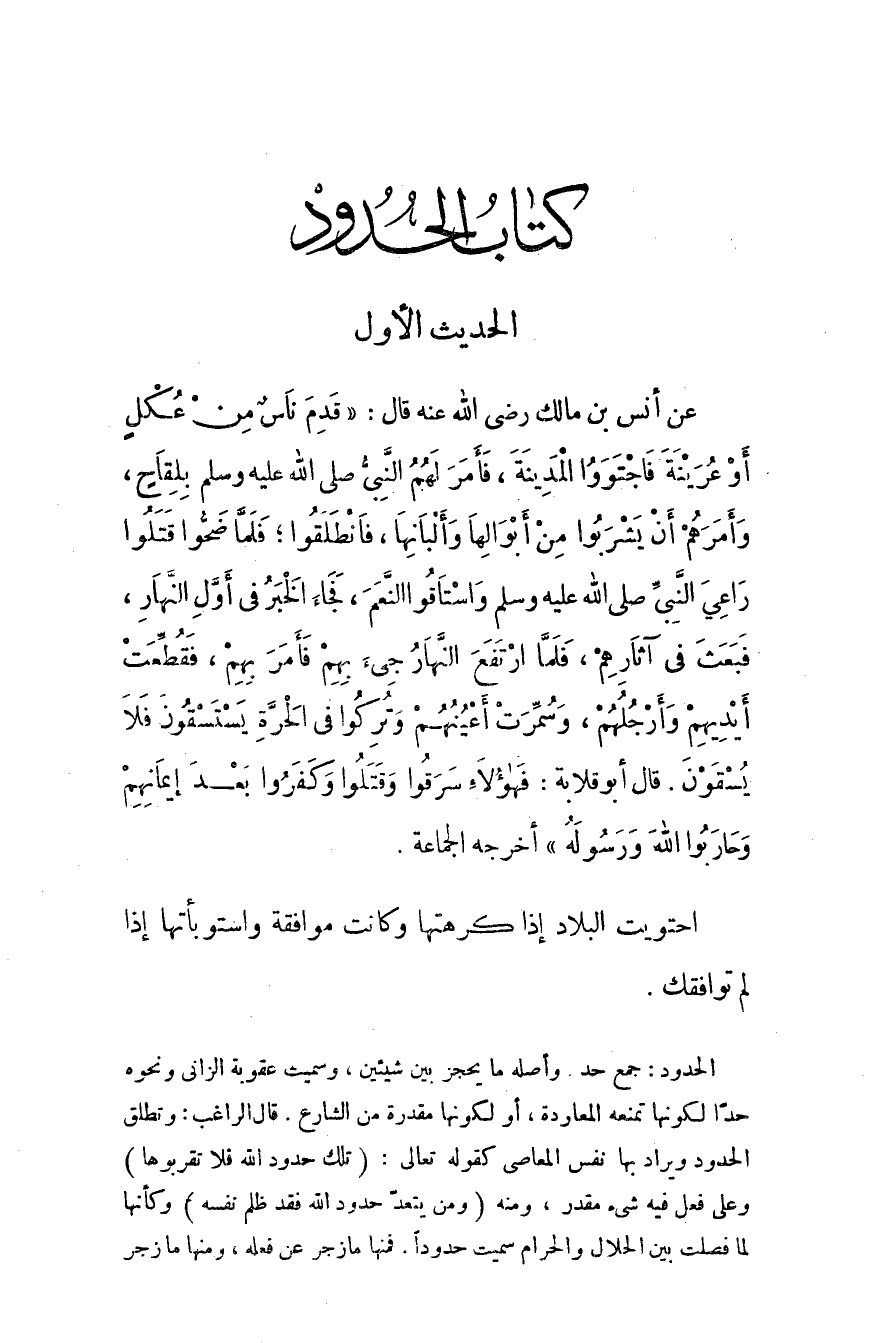 كتابُ الحُدُودْ
الحديث الأول
عن أنس بن مالك رضى الله عنه قال : « قَدِمَ نَاسٌ مِنْ عُكْلٍ
أَوْ عُرَيْنَةَ فَاجْتَوَوُا الْمَدِينَةَ ، فَأَمَرَ لَهُمُ النَّبِىُّ صلى الله عليه وسلم بِلِقَاحٍ ،
وَأَمَرَهُمْ أَنْ يَشْرَبُوا مِنْ أَبْوَالِهَا وَأَلْبَانِهَا ، فَانْطَلَقُوا ؛ فَلَمَّا صَحُّوا قَتَلُوا
رَاعِيَ النَّبِىِّ صلى الله عليه وسلم وَاسْتَاقُوا النَّعَمَ ، فَجَاءَ الْخَبَرُ فى أَوَّلِ النَّهَارِ ،
فَبَعَثَ فى آثَارِهِمْ ، فَلَمَّا ارْتَفَعَ النَّهَارُ جِىءَ بِهِمْ فَأَمَرَ بِهِمْ ، فَقُطِّعَتْ
أَيْدِيهِمْ وَأَرْجُلُهُمْ ، وَسُمِّرَتْ أَعْيُنُهُمْ وَتُرِكُوا فى الْحَرَّةِ يَسْتَسْقُونَ فَلَا
يُسْقَوْنَ . قال أبو قلابة : فَهٰؤُلَاءِ سَرَقُوا وَقَتَلُوا وَكَفَرُوا بَعْدَ إِيمَانِهِمْ
وَحَارَبُوا اللهَ وَرَسُولَهُ » أخرجه الجماعة .
احتويت البلاد إذا كرهتها وكانت موافقة واستوبأتها إذا
لم توافقك .
الحدود : جمع حد . وأصله ما يحجز بين شيئين ، وسميت عقوبة الزانى ونحوه
حدّا لكونها تمنعه المعاردة ، أو لكونها مقدرة من الشارع . قال الراغب : وتطلق
الحدود ويراد بها نفس المعاصى كقوله تعالى : ( تلك حدود الله فلا تقربوها )
وعلى فعل فيه شىء مقدر ، ومنه ( ومن يتعدّ حدود الله فقد ظلم نفسه ) وكأنها
لما فصلت بين الحلال والحرام سميت حدوداً . فمنها ما زجر عن فعله ، ومنها ما زجر